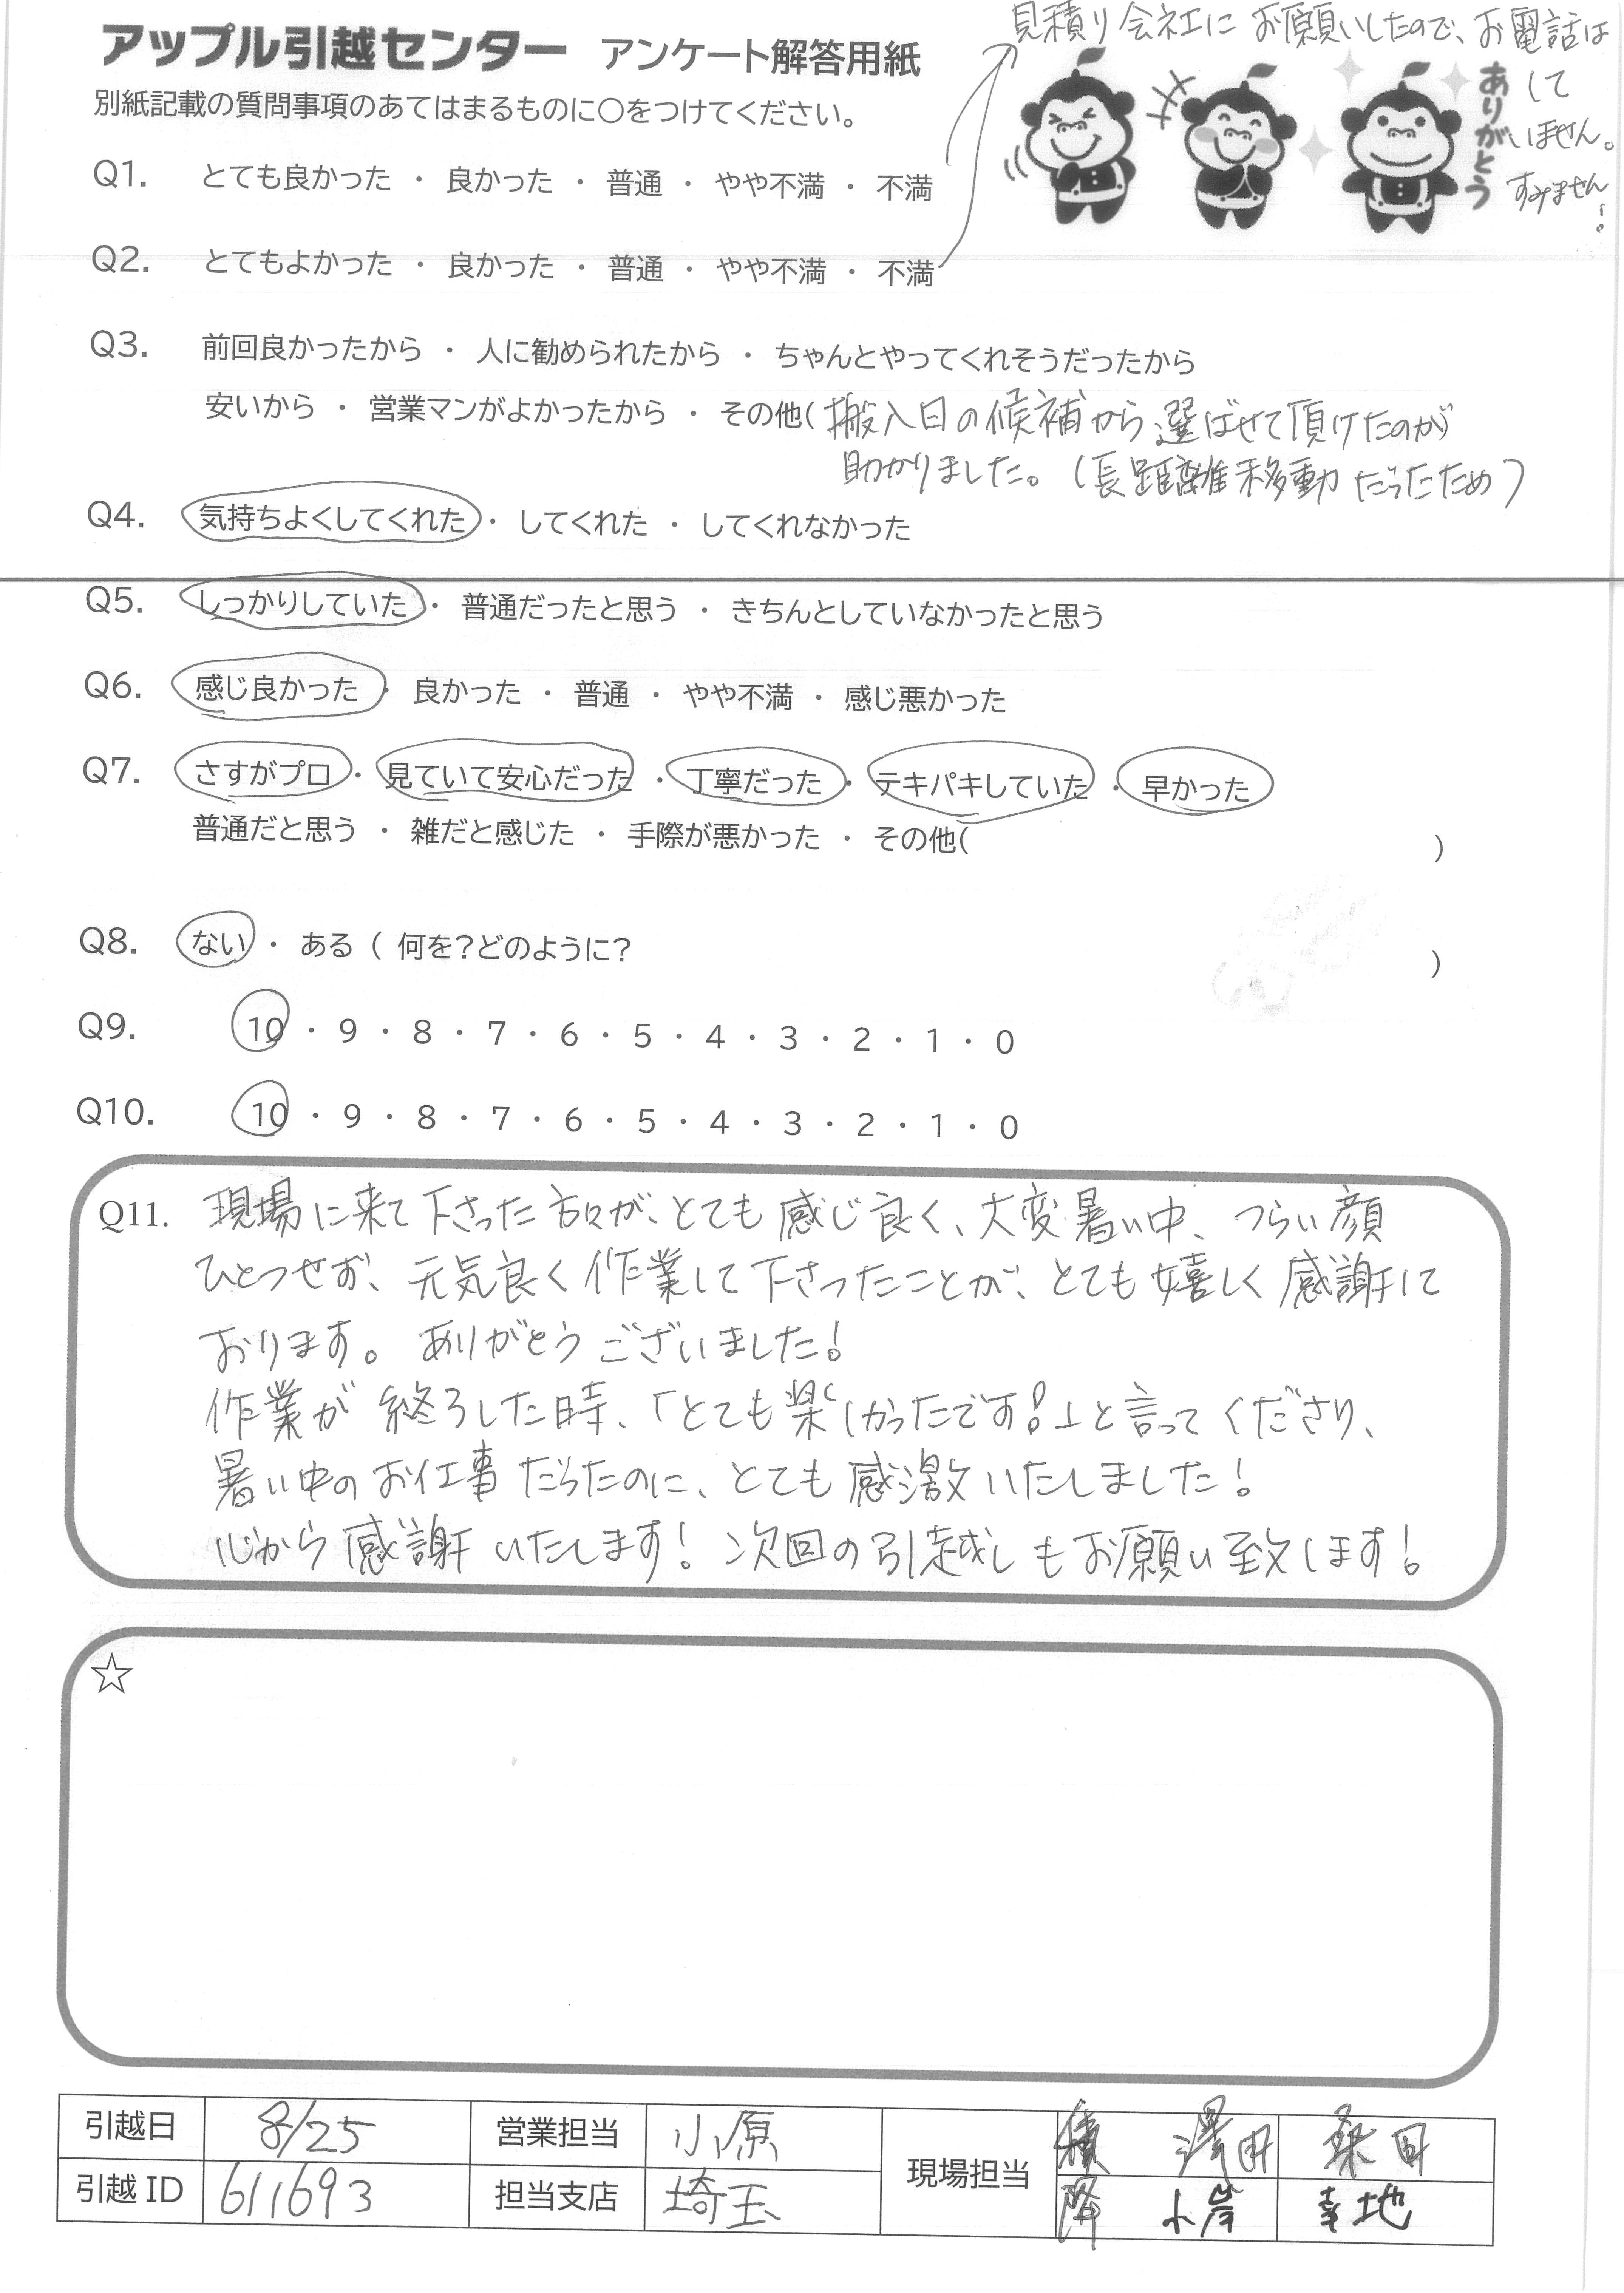 アップル引越センター アンケート解答用紙
見積り会社に お願いしたので、お電話は
して
いません。
すみません!
ありがとう
別紙記載の質問事項のあてはまるものに○をつけてください。
Q1. とても良かった ・ 良かった ・ 普通 ・ やや不満 ・ 不満
Q2. とてもよかった ・ 良かった ・ 普通 ・ やや不満 ・ 不満
Q3. 前回良かったから ・ 人に勧められたから ・ ちゃんとやってくれそうだったから
安いから ・ 営業マンがよかったから ・ その他( 搬入日の候補から選ばせて頂けたのが
助かりました。(長距離移動だったため)
Q4. 気持ちよくしてくれた ・ してくれた ・ してくれなかった
Q5. しっかりしていた ・ 普通だったと思う ・ きちんとしていなかったと思う
Q6. 感じ良かった ・ 良かった ・ 普通 ・ やや不満 ・ 感じ悪かった
Q7. さすがプロ ・ 見ていて安心だった ・ 丁寧だった ・ テキパキしていた ・ 早かった
普通だと思う ・ 雑だと感じた ・ 手際が悪かった ・ その他( )
Q8. ない ・ ある ( 何を?どのように? )
Q9. 10 ・ 9 ・ 8 ・ 7 ・ 6 ・ 5 ・ 4 ・ 3 ・ 2 ・ 1 ・ 0
Q10. 10 ・ 9 ・ 8 ・ 7 ・ 6 ・ 5 ・ 4 ・ 3 ・ 2 ・ 1 ・ 0
Q11. 現場に来て下さった方々が、とても感じ良く、大変暑い中、つらい顔
ひとつせず、元気良く作業して下さったことが、とても嬉しく感謝して
おります。ありがとうございました!
作業が終了した時、「とても楽しかったです!」と言ってくださり、
暑い中のお仕事だったのに、とても感激いたしました!
心から感謝いたします! 次回の引越しもお願い致します!
☆
引越日 8/25 営業担当 小原 現場担当 積 澤田 桑田
引越ID 611693 担当支店 埼玉 降 小岸 幸地